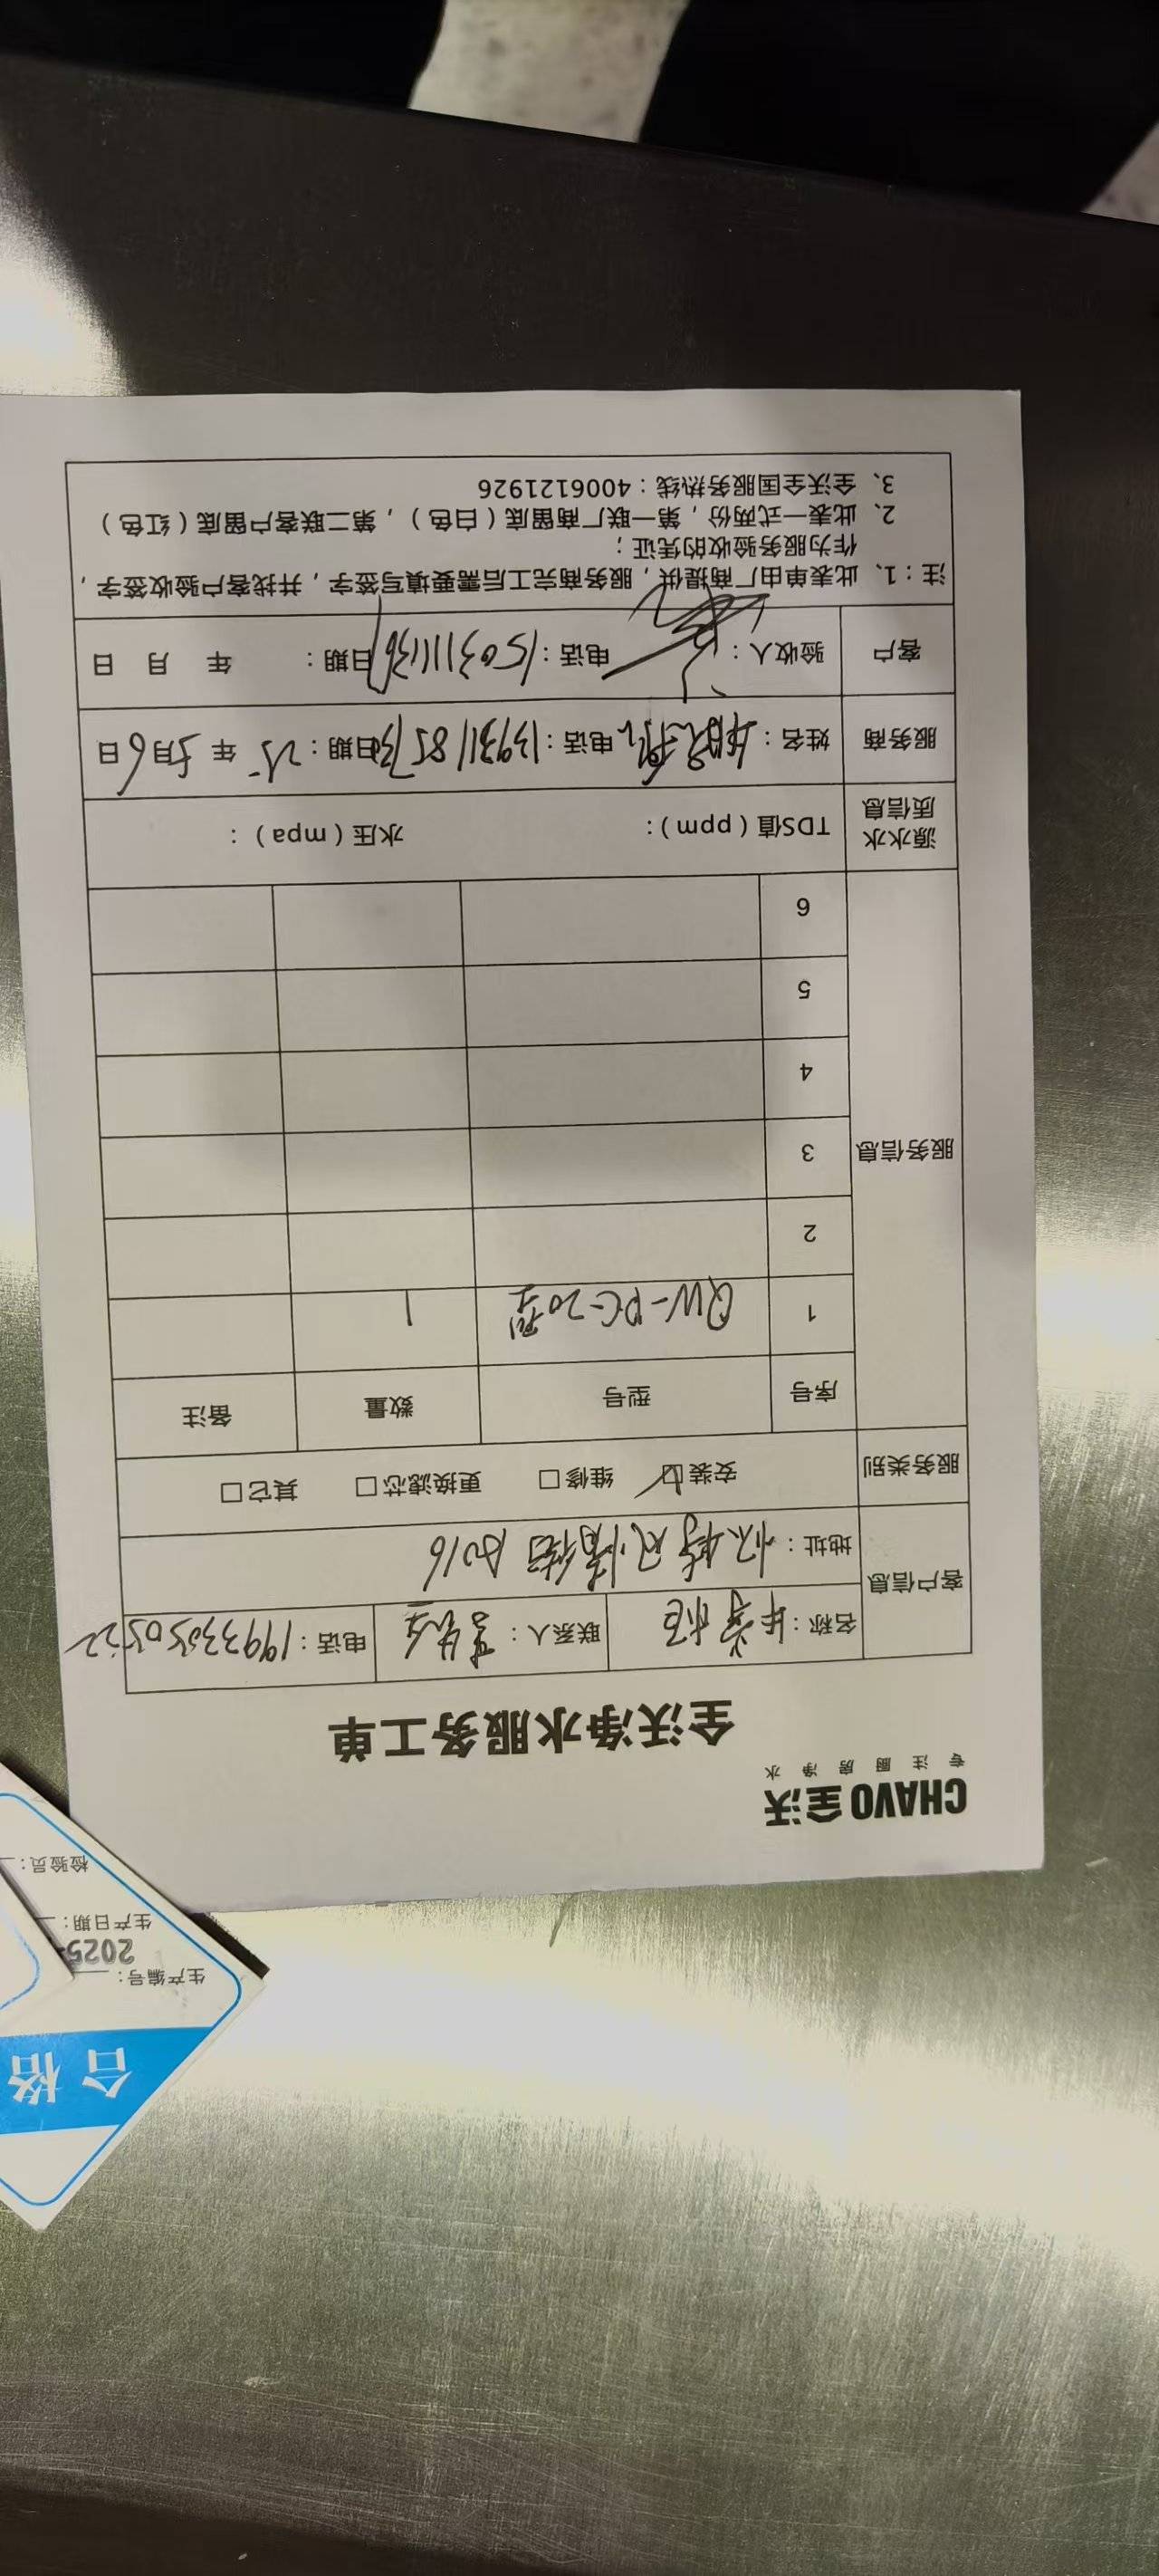 CHAVO 全沃
专注厨房净水
全沃净水服务工单
客户信息 名称: 联系人: 电话:19933050522
地址: 风情街 B016
服务类别 安装☑ 维修□ 更换滤芯□ 其它□
服务信息 序号 型号 数量 备注
1 QW-PC-20型 1
2
3
4
5
6
源水水质信息 TDS值(ppm): 水压(mpa):
服务商 姓名: 电话:13931185713 日期:25年5月6日
客户 验收人: 电话: 日期: 年 月 日
注:1、此表单由厂商提供,服务商完工后需要填写签字,并找客户验收签字,
作为服务验收的凭证;
2、此表一式两份,第一联厂商留底(白色),第二联客户留底(红色)
3、全沃全国服务热线:4006121926
合格
生产编号:
2025
生产日期:
检验员: